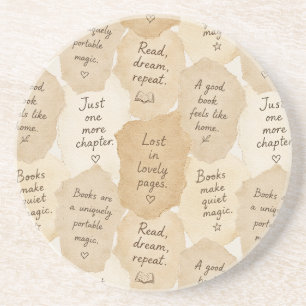 Books are
a uniquely
portable
magic.
Read,
dream,
repeat.
A good
book
feels like
home.
Just
one
more
chapter.
Lost
in
lovely
pages.
Just
one
more
chapter.
Books
make
quiet
magic.
Books are
a uniquely
portable
magic.
Read,
dream,
repeat.
Books
make
quiet
magic.
A good
book